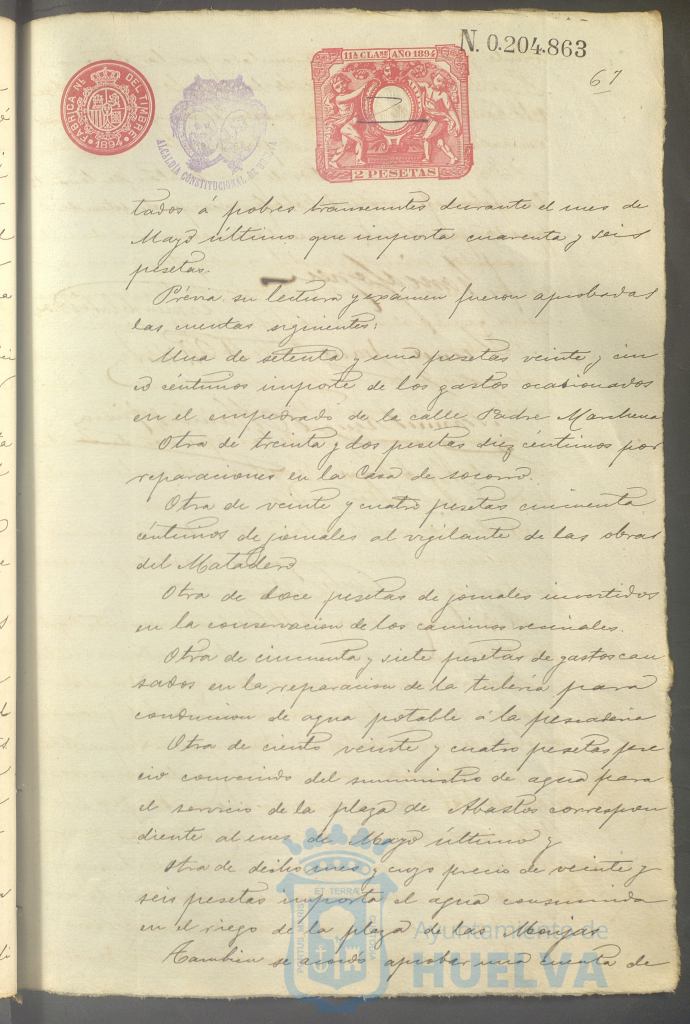 N. 0.204.863
67
11ª CLASE AÑO 1894
2 PESETAS
FABRICA NL. DEL TIMBRE
1894
ALCALDÍA CONSTITUCIONAL DE HUELVA
tados á pobres transeuntes durante el mes de
Mayo último que importa cuarenta y seis
pesetas.
Prévia su lectura y exámen fueron aprobadas
las cuentas siguientes:
Una de setenta y una pesetas veinte y cin
co céntimos importe de los gastos ocasionados
en el empedrado de la calle Padre Marchena
Otra de treinta y dos pesetas diez céntimos por
reparaciones en la Casa de socorro.
Otra de veinte y cuatro pesetas cincuenta
céntimos de jornales al vigilante de las obras
del Matadero
Otra de doce pesetas de jornales invertidos
en la conservacion de los caminos vecinales.
Otra de cincuenta y siete pesetas de gastos cau
sados en la reparacion de la tuberia para
conduccion de agua potable á la pescaderia
Otra de ciento veinte y cuatro pesetas pre
cio convenido del suministro de agua para
el servicio de la plaza de Abastos correspon
diente al mes de Mayo último y
otra de dicho mes y cuyo precio de veinte y
seis pesetas importa el agua consumida
en el riego de la plaza de las Monjas
Tambien se acordó aprobar una cuenta de
PORTUS MARIS ET TERRAE CUSTODIA
Ayuntamiento de
HUELVA